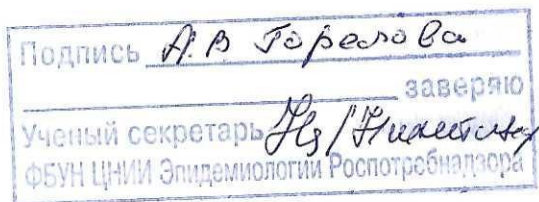 Подпись А.В Горелова
заверяю
Ученый секретарь
ФБУН ЦНИИ Эпидемиологии Роспотребнадзора